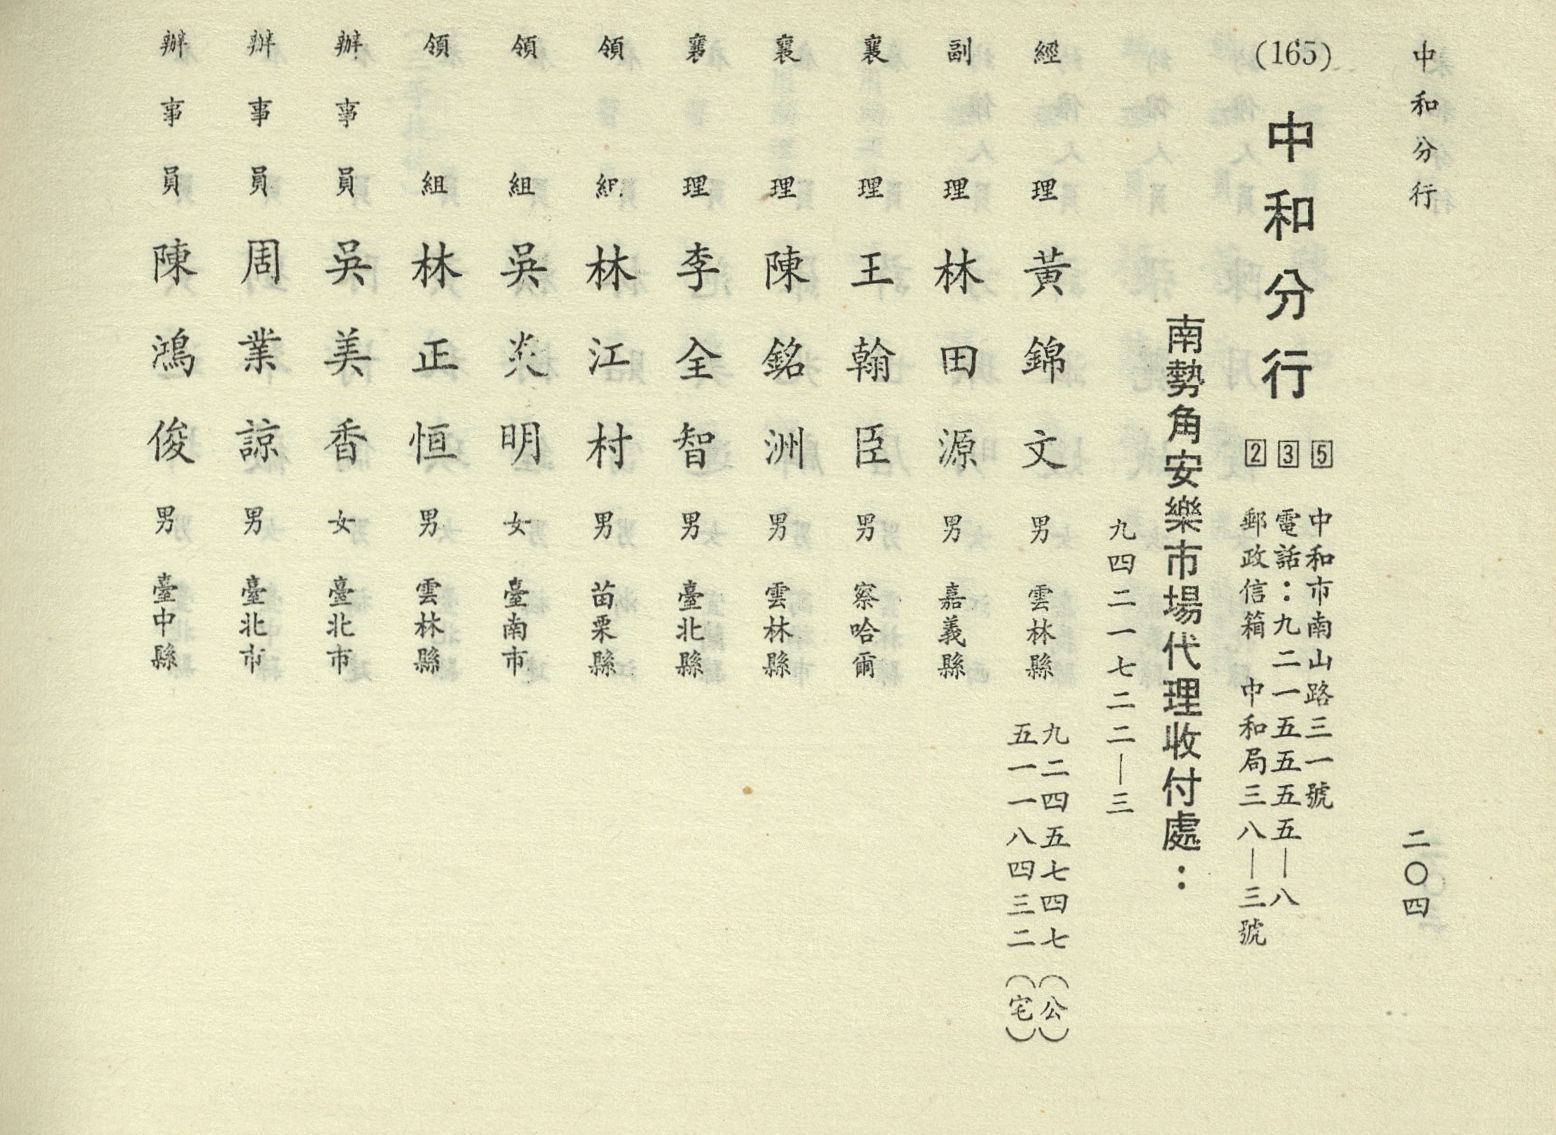 中和分行
二〇四
(165)
中和分行
5 中和市南山路三一號
3 電話：九二一五五五五—八
2 郵政信箱 中和局三八—三號
南勢角安樂市場代理收付處：
九四二一七二二—三
經理 黃錦文 男 雲林縣 九二四五七四七（公）
五一一八四三二（宅）
副理 林田源 男 嘉義縣
襄理 王翰臣 男 察哈爾
襄理 陳銘洲 男 雲林縣
襄理 李全智 男 臺北縣
領組 林江村 男 苗栗縣
領組 吳炎明 女 臺南市
領組 林正恒 男 雲林縣
辦事員 吳美香 女 臺北市
辦事員 周業諒 男 臺北市
辦事員 陳鴻俊 男 臺中縣